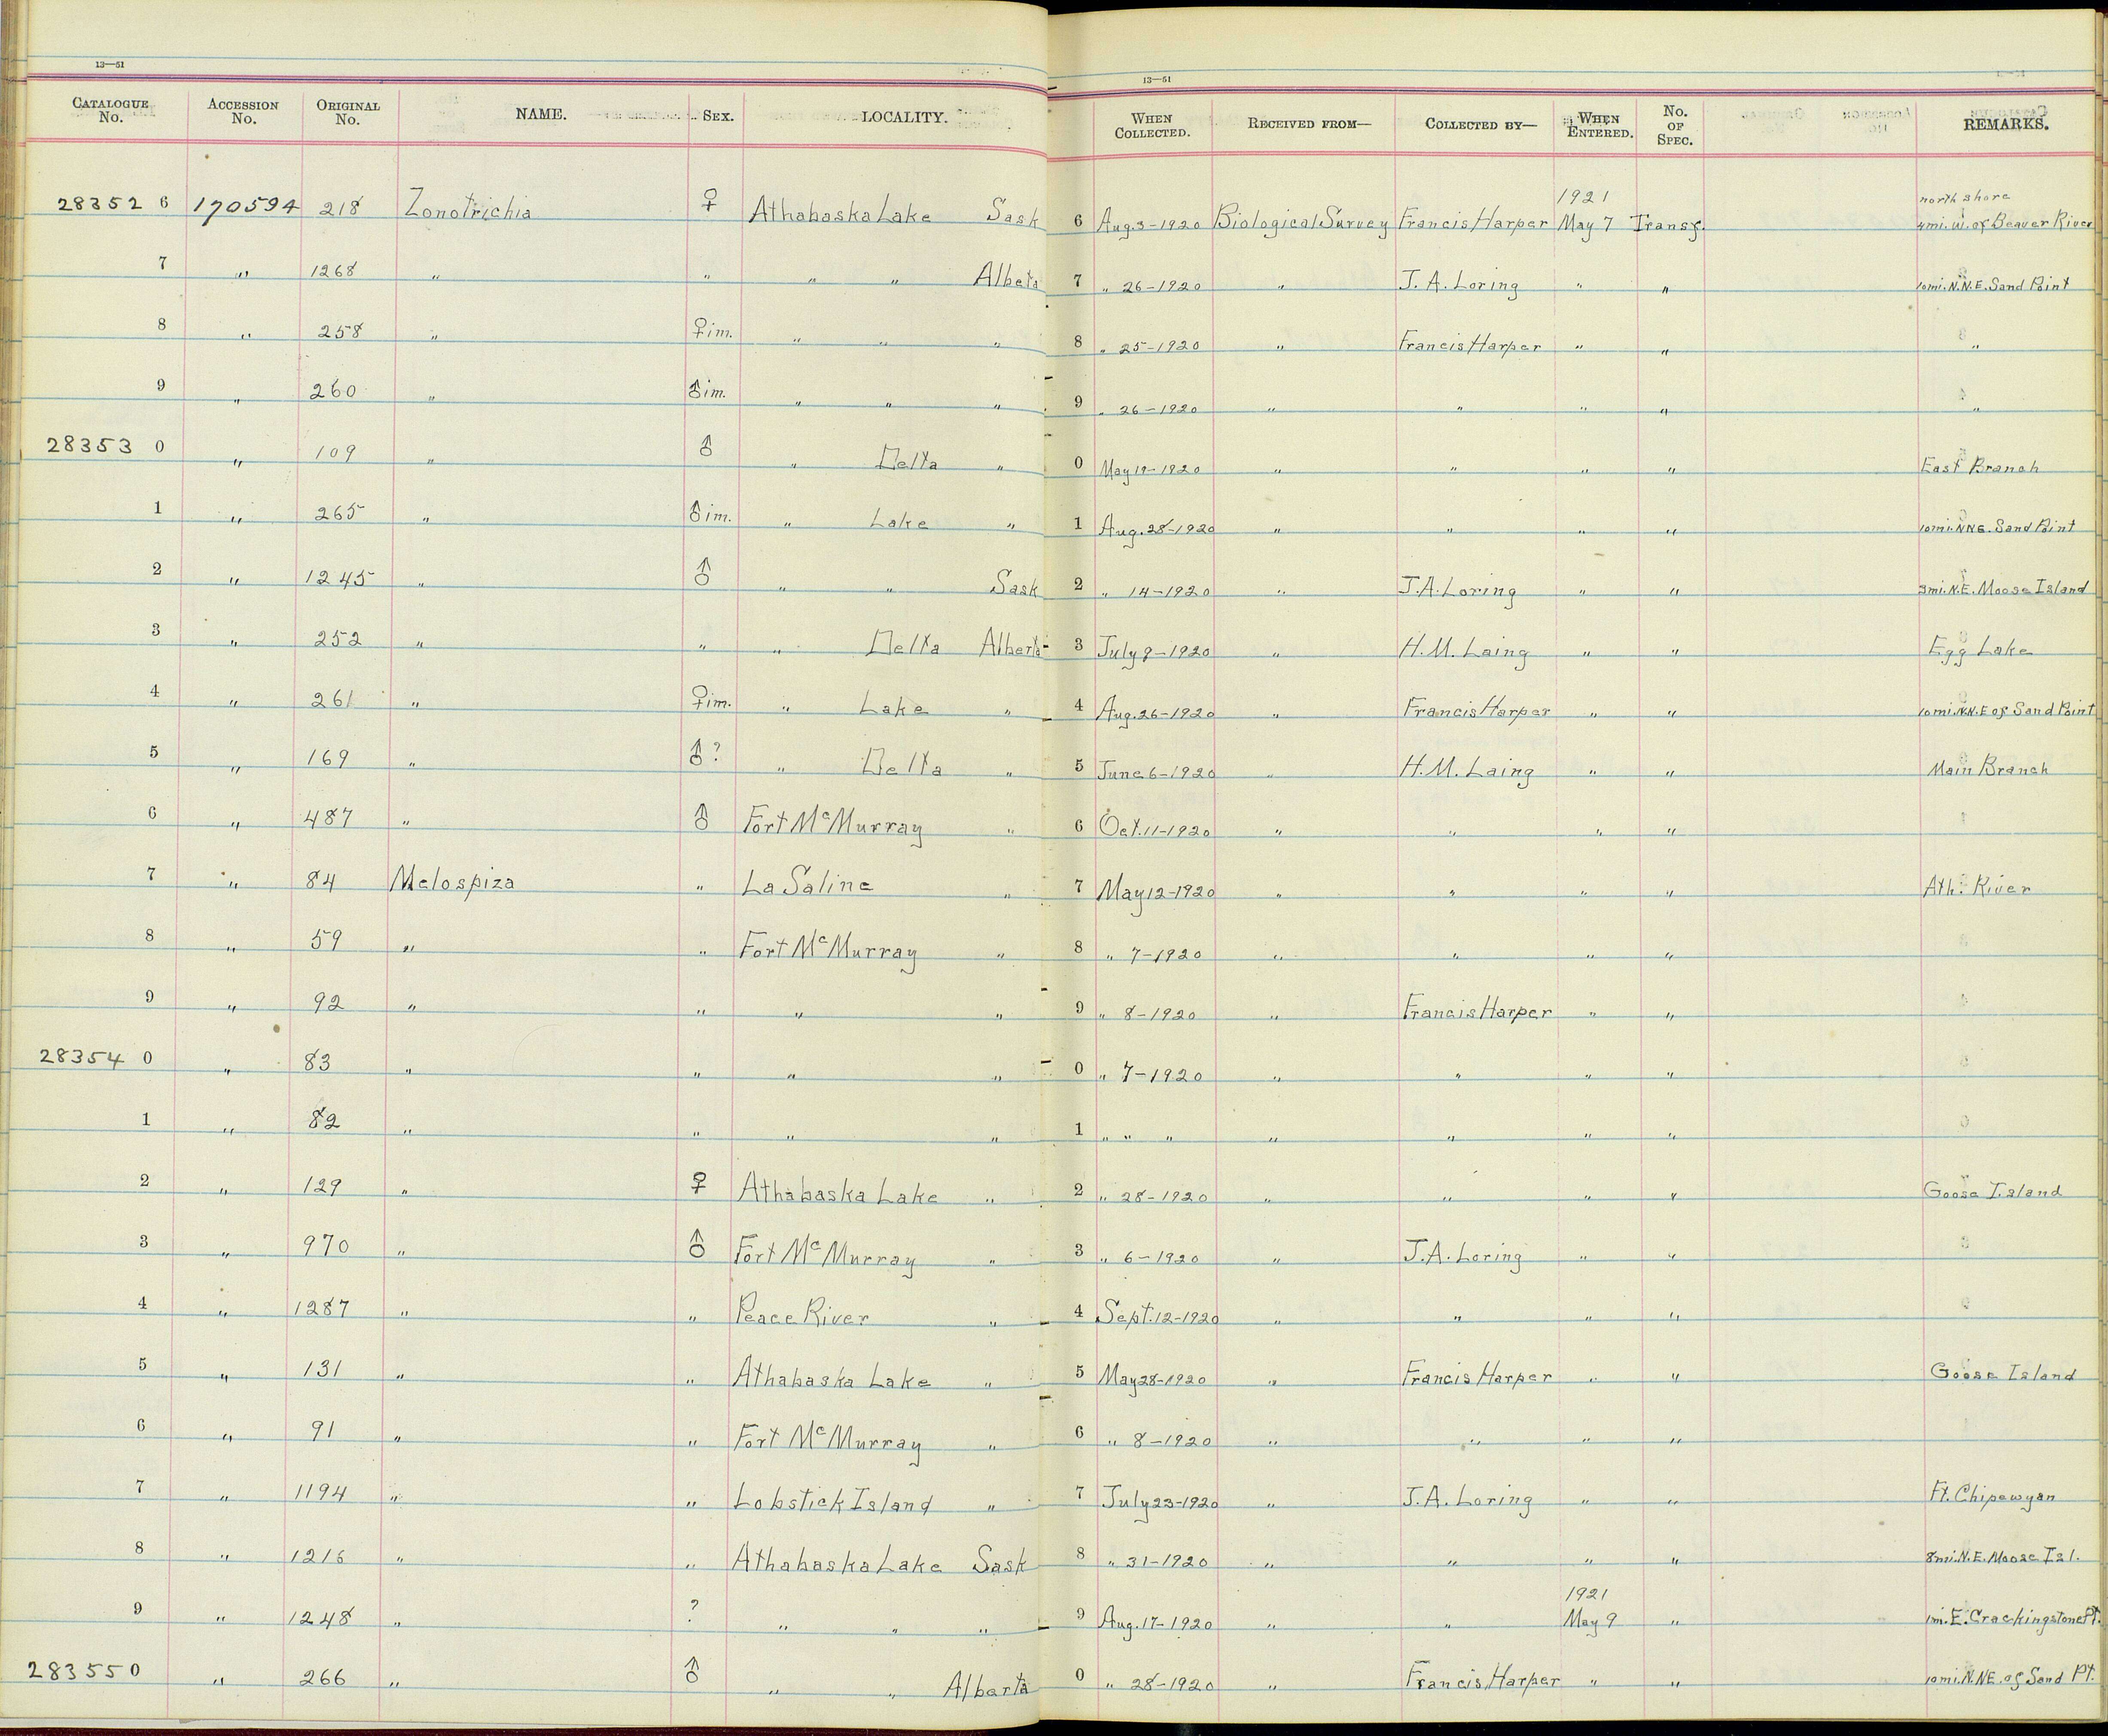 13—51 13—51
CATALOGUE No. ACCESSION No. ORIGINAL No. NAME. SEX. LOCALITY. WHEN COLLECTED. RECEIVED FROM— COLLECTED BY— WHEN ENTERED. No. OF SPEC. REMARKS.
28352 6 170594 218 Zonotrichia ♀ Athabaska Lake Sask 6 Aug. 3-1920 Biological Survey Francis Harper 1921 May 7 Transf. north shore 4mi. W. of Beaver River
7 " 1268 " " " " Alberta 7 " 26-1920 " J. A. Loring " " 10mi. N.N.E. Sand Point
8 " 258 " ♀im. " " " 8 " 25-1920 " Francis Harper " " "
9 " 260 " ♂im. " " " 9 " 26-1920 " " " " "
28353 0 " 109 " ♂ " Delta " 0 May 19-1920 " " " " East Branch
1 " 265 " ♂im. " Lake " 1 Aug. 28-1920 " " " " 10mi. NNE. Sand Point
2 " 1245 " ♂ " " Sask 2 " 14-1920 " J. A. Loring " " 3mi. N.E. Moose Island
3 " 252 " " " Delta Alberta 3 July 9-1920 " H. M. Laing " " Egg Lake
4 " 261 " ♀im. " Lake " 4 Aug. 26-1920 " Francis Harper " " 10mi. N.N.E of Sand Point
5 " 169 " ♂? " Delta " 5 June 6-1920 " H. M. Laing " " Main Branch
6 " 487 " ♂ Fort McMurray " 6 Oct. 11-1920 " " " "
7 " 84 Melospiza " La Saline " 7 May 12-1920 " " " " Ath. River
8 " 59 " " Fort McMurray " 8 " 7-1920 " " " "
9 " 92 " " " " 9 " 8-1920 " Francis Harper " "
28354 0 " 83 " " " " 0 " 7-1920 " " " "
1 " 82 " " " " 1 " " " " " " "
2 " 129 " ♀ Athabaska Lake " 2 " 28-1920 " " " " Goose Island
3 " 970 " ♂ Fort McMurray " 3 " 6-1920 " J. A. Loring " "
4 " 1287 " " Peace River " 4 Sept. 12-1920 " " " "
5 " 131 " " Athabaska Lake " 5 May 28-1920 " Francis Harper " " Goose Island
6 " 91 " " Fort McMurray " 6 " 8-1920 " " " "
7 " 1194 " " Lobstick Island " 7 July 23-1920 " J. A. Loring " " Ft. Chipewyan
8 " 1216 " " Athabaska Lake Sask 8 " 31-1920 " " " " 8mi. N.E. Moose Isl.
9 " 1248 " ? " " " 9 Aug. 17-1920 " " 1921 May 9 " 1mi. E. Crackingstone Pt.
28355 0 " 266 " ♂ " " Alberta 0 " 28-1920 " Francis Harper " " 10mi. N.NE. of Sand Pt.